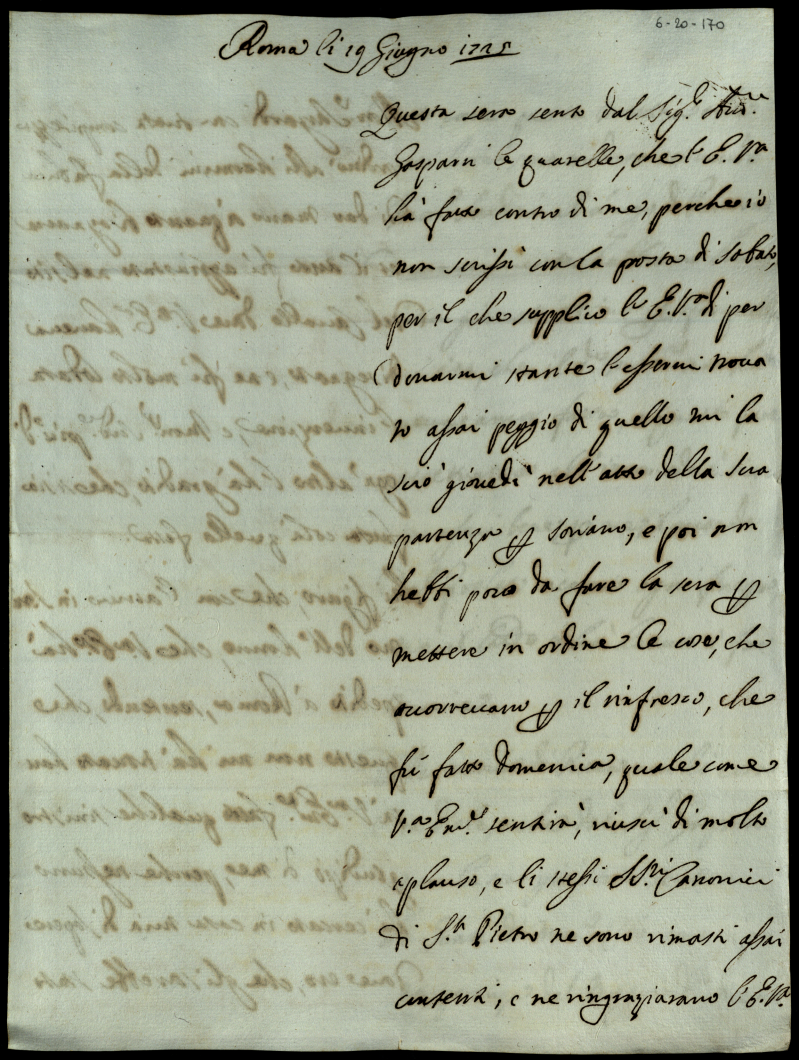 6-20-170
Roma li 19 Giugno 1725
Questa sera sento dal Sig.r
Gasparri le quarelle, che l'E. V.ra
hà fatto contro di me, perche io
non scrissi con la posta di sabato,
per il che supplico l'E. V.ra di per
donarmi stante l'essermi trova
to assai peggio di quello mi la
sciò giovedì nell'atto della sua
partenza per Soriano, e poi non
hebbi poco da fare la sera per
mettere in ordine le cose, che
occorrevano per il rinfresco, che
fù fatto domenica, quale come
V.ra Em.za sentirà, riuscì di molto
aplauso, e li stessi SS.ri Canonici
di S. Pietro ne sono rimasti assai
contenti, e ne ringraziarano l'E. V.ra